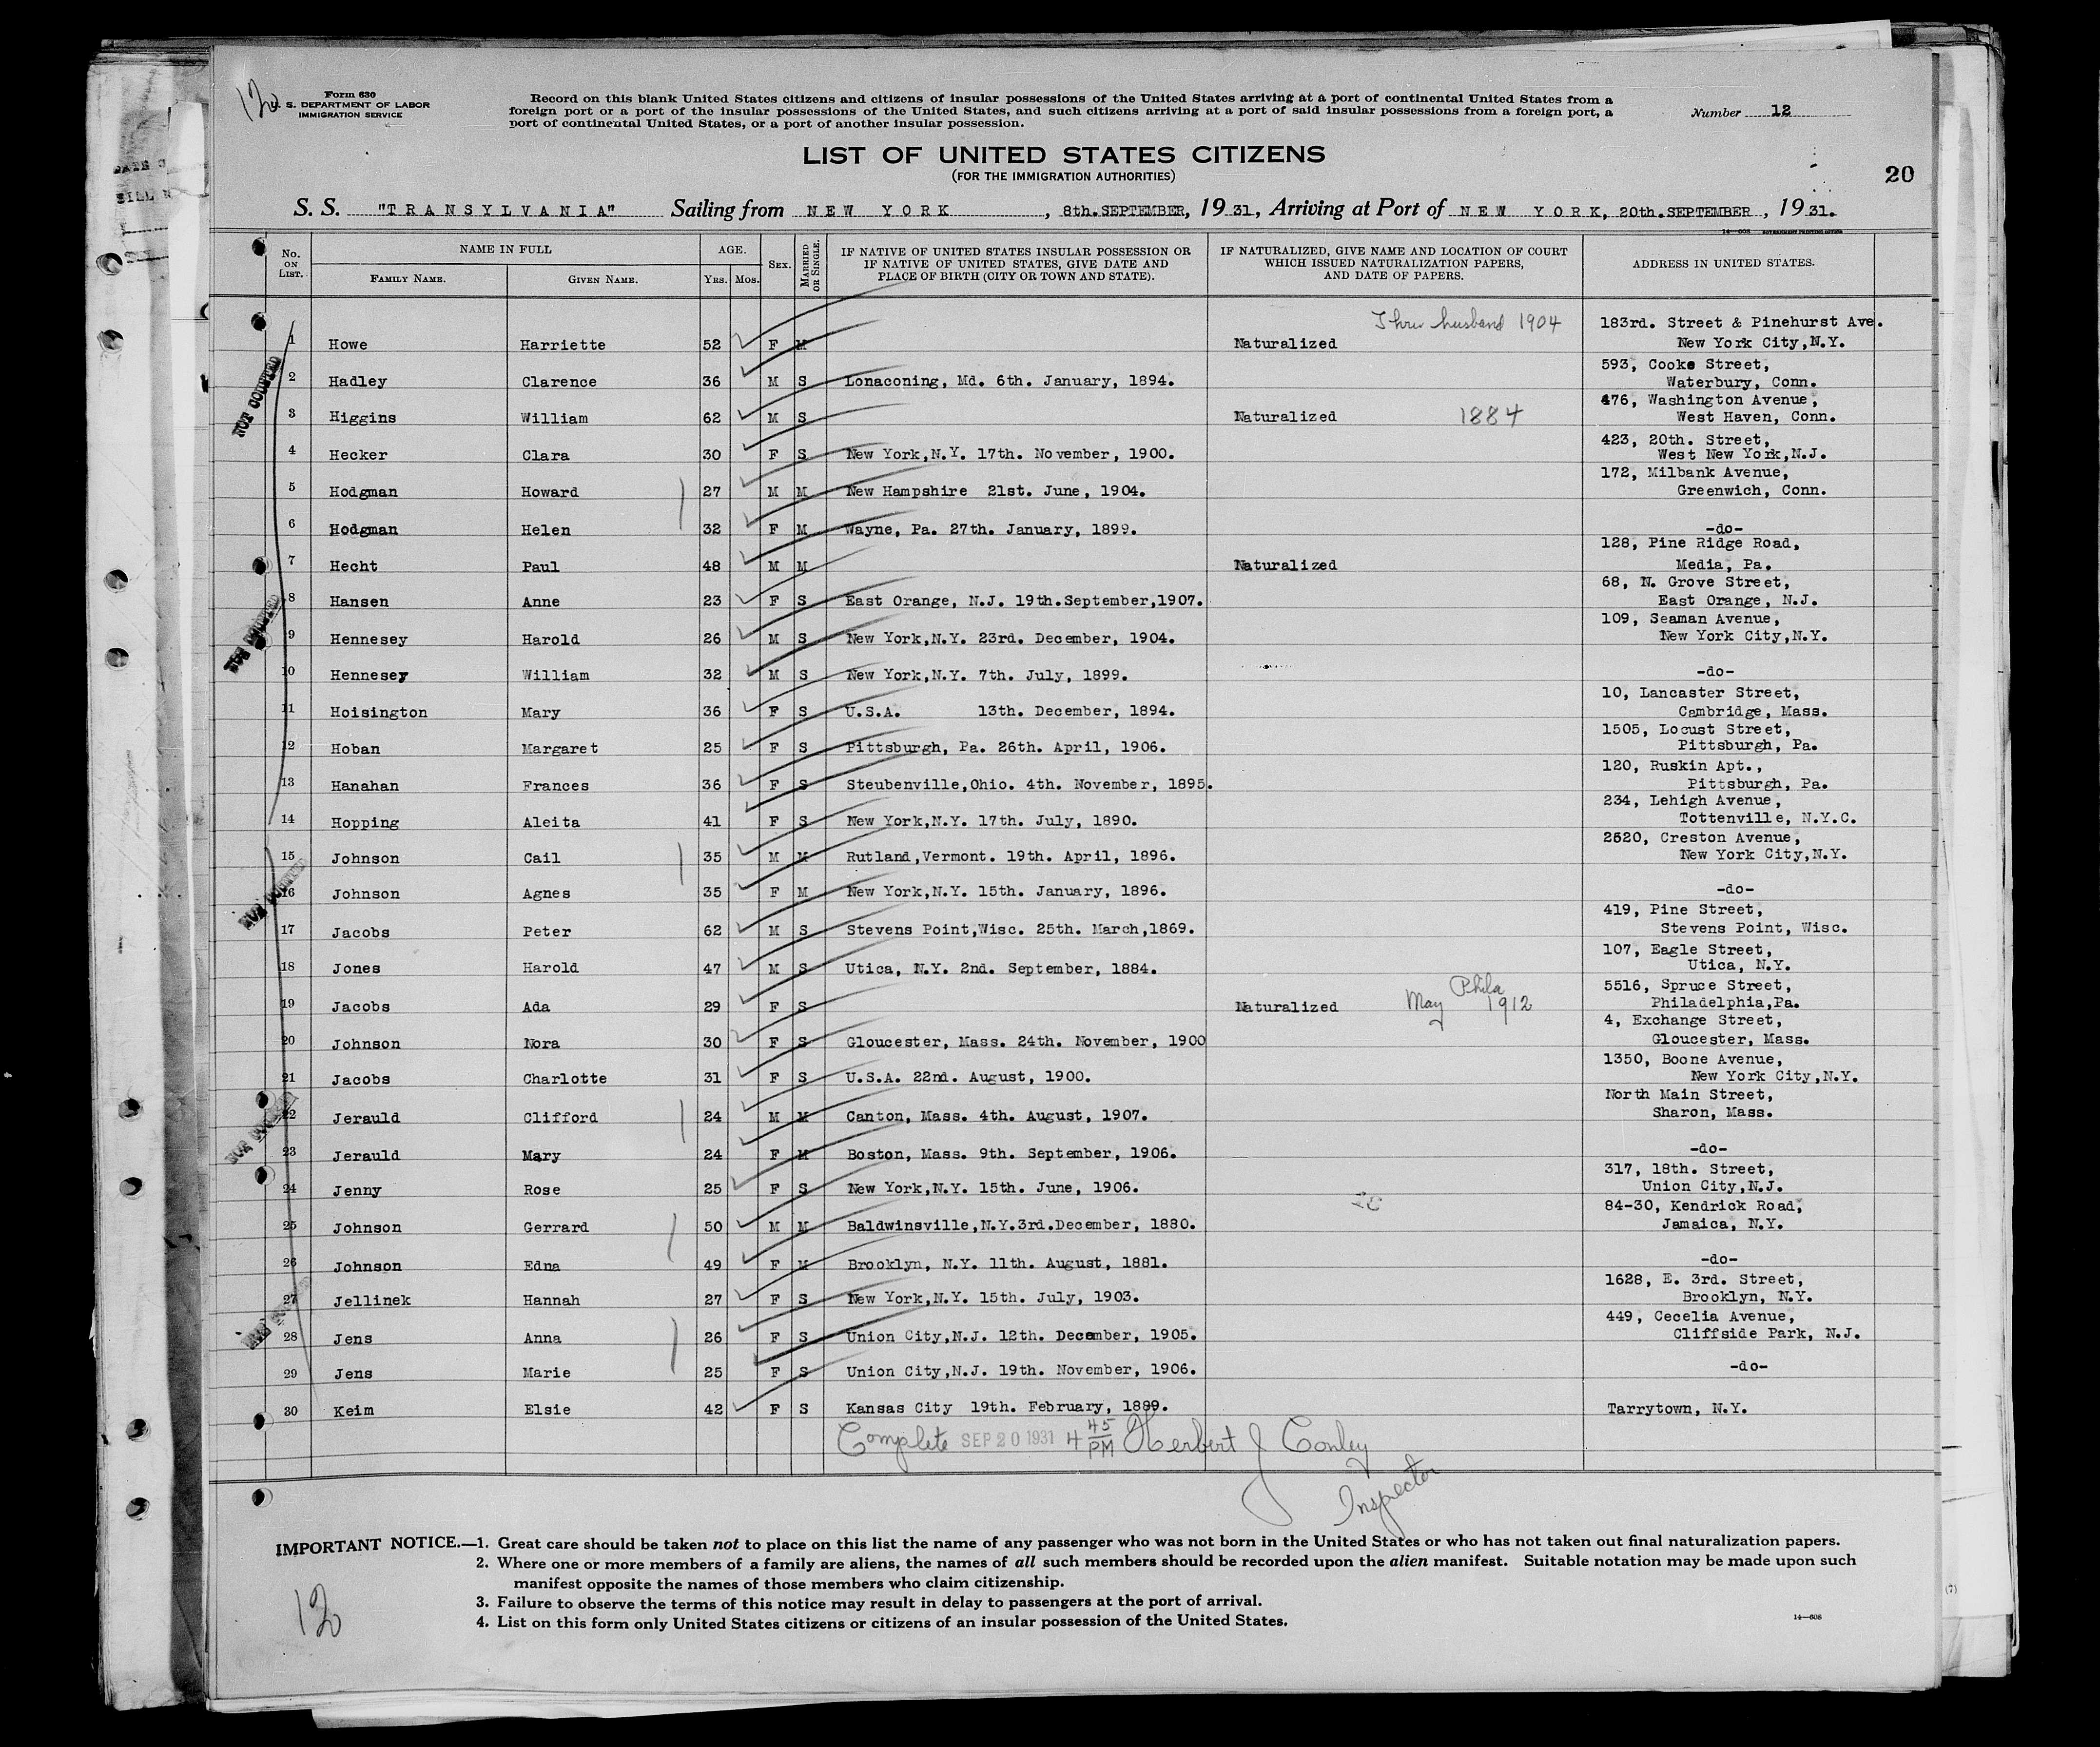 12
Form 630
U. S. DEPARTMENT OF LABOR
IMMIGRATION SERVICE
Record on this blank United States citizens and citizens of insular possessions of the United States arriving at a port of continental United States from a
foreign port or a port of the insular possessions of the United States, and such citizens arriving at a port of said insular possessions from a foreign port, a
port of continental United States, or a port of another insular possession.
Number 12
LIST OF UNITED STATES CITIZENS
(FOR THE IMMIGRATION AUTHORITIES)
20
S. S. "TRANSYLVANIA" Sailing from NEW YORK, 8th. SEPTEMBER, 1931, Arriving at Port of NEW YORK, 20th. SEPTEMBER, 1931.
14—608 GOVERNMENT PRINTING OFFICE
No. ON LIST. NAME IN FULL FAMILY NAME. GIVEN NAME. AGE. YRS. MOS. SEX. MARRIED OR SINGLE. IF NATIVE OF UNITED STATES INSULAR POSSESSION OR IF NATIVE OF UNITED STATES, GIVE DATE AND PLACE OF BIRTH (CITY OR TOWN AND STATE). IF NATURALIZED, GIVE NAME AND LOCATION OF COURT WHICH ISSUED NATURALIZATION PAPERS, AND DATE OF PAPERS. ADDRESS IN UNITED STATES.
Thru husband 1904 183rd. Street & Pinehurst Ave.
1 Howe Harriette 52 F M Naturalized New York City,N.Y.
593, Cooke Street,
2 Hadley Clarence 36 M S Lonaconing, Md. 6th. January, 1894. Waterbury, Conn.
476, Washington Avenue,
3 Higgins William 62 M S Naturalized 1884 West Haven, Conn.
423, 20th. Street,
4 Hecker Clara 30 F S New York,N.Y. 17th. November, 1900. West New York,N.J.
172, Milbank Avenue,
5 Hodgman Howard 27 M M New Hampshire 21st. June, 1904. Greenwich, Conn.
6 Hodgman Helen 32 F M Wayne, Pa. 27th. January, 1899. -do-
128, Pine Ridge Road,
7 Hecht Paul 48 M M Naturalized Media, Pa.
68, N. Grove Street,
8 Hansen Anne 23 F S East Orange, N.J. 19th.September,1907. East Orange, N.J.
109, Seaman Avenue,
9 Hennesey Harold 26 M S New York,N.Y. 23rd. December, 1904. New York City,N.Y.
10 Hennesey William 32 M S New York,N.Y. 7th. July, 1899. -do-
10, Lancaster Street,
11 Hoisington Mary 36 F S U.S.A. 13th. December, 1894. Cambridge, Mass.
1505, Locust Street,
12 Hoban Margaret 25 F S Pittsburgh, Pa. 26th. April, 1906. Pittsburgh, Pa.
120, Ruskin Apt.,
13 Hanahan Frances 36 F S Steubenville,Ohio. 4th. November, 1895. Pittsburgh, Pa.
234, Lehigh Avenue,
14 Hopping Aleita 41 F S New York,N.Y. 17th. July, 1890. Tottenville, N.Y.C.
2520, Creston Avenue,
15 Johnson Cail 35 M M Rutland,Vermont. 19th. April, 1896. New York City,N.Y.
16 Johnson Agnes 35 F M New York,N.Y. 15th. January, 1896. -do-
419, Pine Street,
17 Jacobs Peter 62 M S Stevens Point,Wisc. 25th. March,1869. Stevens Point, Wisc.
107, Eagle Street,
18 Jones Harold 47 M S Utica, N.Y. 2nd. September, 1884. Utica, N.Y.
Phila 5516, Spruce Street,
19 Jacobs Ada 29 F S Naturalized May 1912 Philadelphia,Pa.
4, Exchange Street,
20 Johnson Nora 30 F S Gloucester, Mass. 24th. November, 1900 Gloucester, Mass.
1350, Boone Avenue,
21 Jacobs Charlotte 31 F S U.S.A. 22nd. August, 1900. New York City,N.Y.
North Main Street,
22 Jerauld Clifford 24 M M Canton, Mass. 4th. August, 1907. Sharon, Mass.
23 Jerauld Mary 24 F M Boston, Mass. 9th. September, 1906. -do-
317, 18th. Street,
24 Jenny Rose 25 F S New York,N.Y. 15th. June, 1906. Union City,N.J.
84-30, Kendrick Road,
25 Johnson Gerrard 50 M M Baldwinsville,N.Y.3rd.December, 1880. Jamaica, N.Y.
26 Johnson Edna 49 F M Brooklyn, N.Y. 11th. August, 1881. -do-
1628, E. 3rd. Street,
27 Jellinek Hannah 27 F S New York,N.Y. 15th. July, 1903. Brooklyn, N.Y.
449, Cecelia Avenue,
28 Jens Anna 26 F S Union City,N.J. 12th. December, 1905. Cliffside Park, N.J.
29 Jens Marie 25 F S Union City,N.J. 19th. November, 1906. -do-
30 Keim Elsie 42 F S Kansas City 19th. February, 1889. Tarrytown, N.Y.
Complete SEP 20 1931 4 45 PM Herbert J Conley
Inspector
NOT COUNTED
IMPORTANT NOTICE.—1. Great care should be taken not to place on this list the name of any passenger who was not born in the United States or who has not taken out final naturalization papers.
2. Where one or more members of a family are aliens, the names of all such members should be recorded upon the alien manifest. Suitable notation may be made upon such
manifest opposite the names of those members who claim citizenship.
3. Failure to observe the terms of this notice may result in delay to passengers at the port of arrival.
4. List on this form only United States citizens or citizens of an insular possession of the United States.
14—608
12